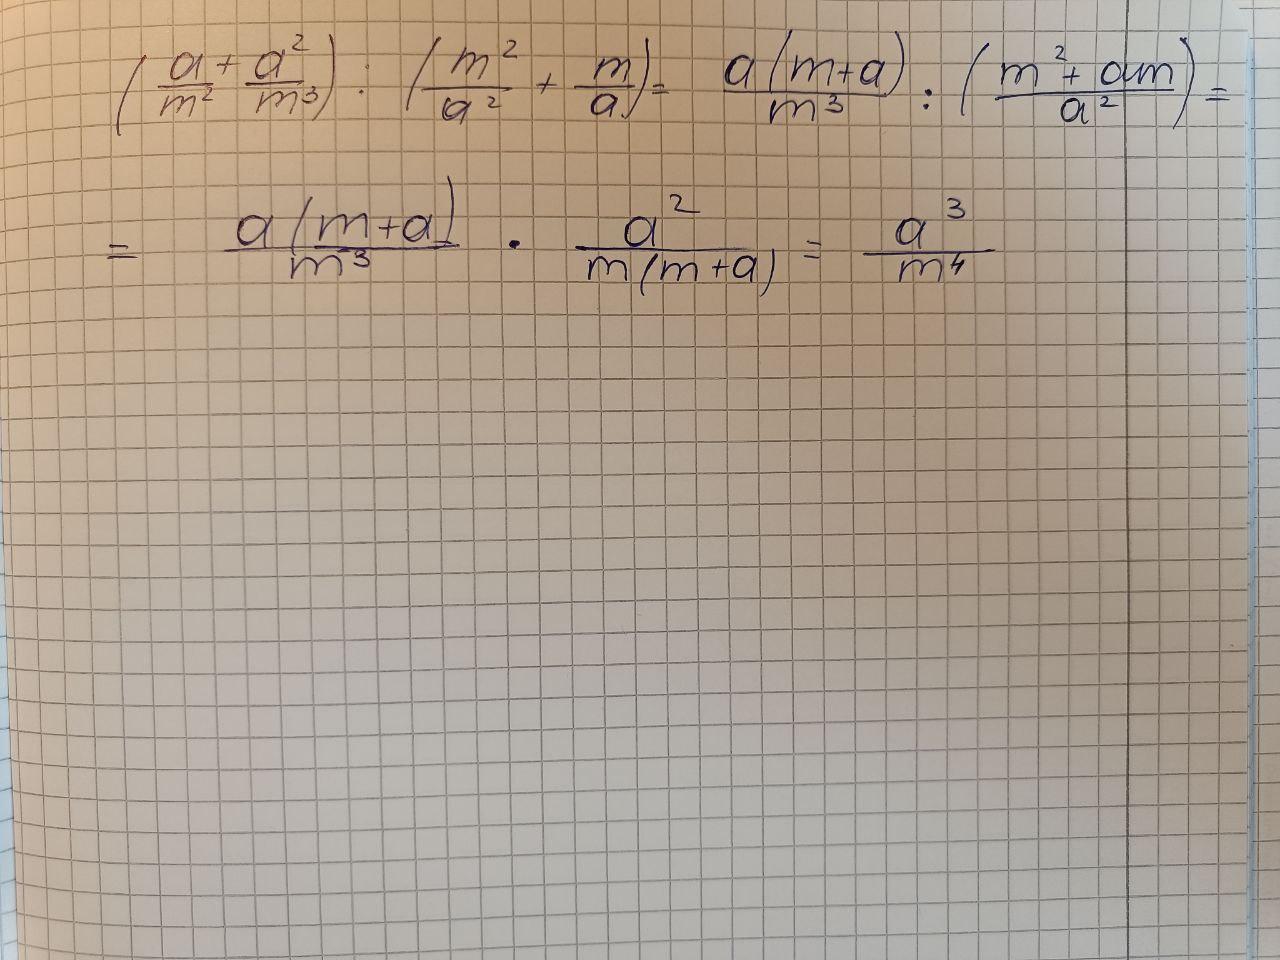 (a/m² + a²/m³) : (m²/a² + m/a) = a(m+a)/m³ : (m² + am/a²) =
= a(m+a)/m³ · a²/m(m+a) = a³/m⁴